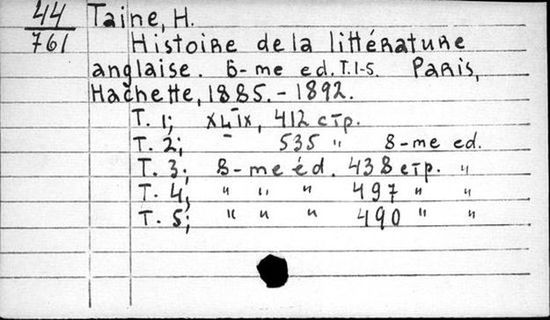 44 Taine, H.
761 Histoire de la littérature
anglaise. 6-me ed. T.1-5. Paris,
Hachette, 1885.-1892.
T. 1; XLIX, 412 стр.
T. 2; 535 " 8-me ed.
T. 3; 8-me éd. 438 стр. "
T. 4; " " " 497 " "
T. 5; " " " 490 " "